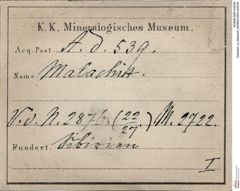 K. K. Mineralogisches Museum.
Acq. Post. A. d. 539.
Name Malachit
V. d. N. 2876. (22/27) M. 2722.
Fundort Sibirien
I